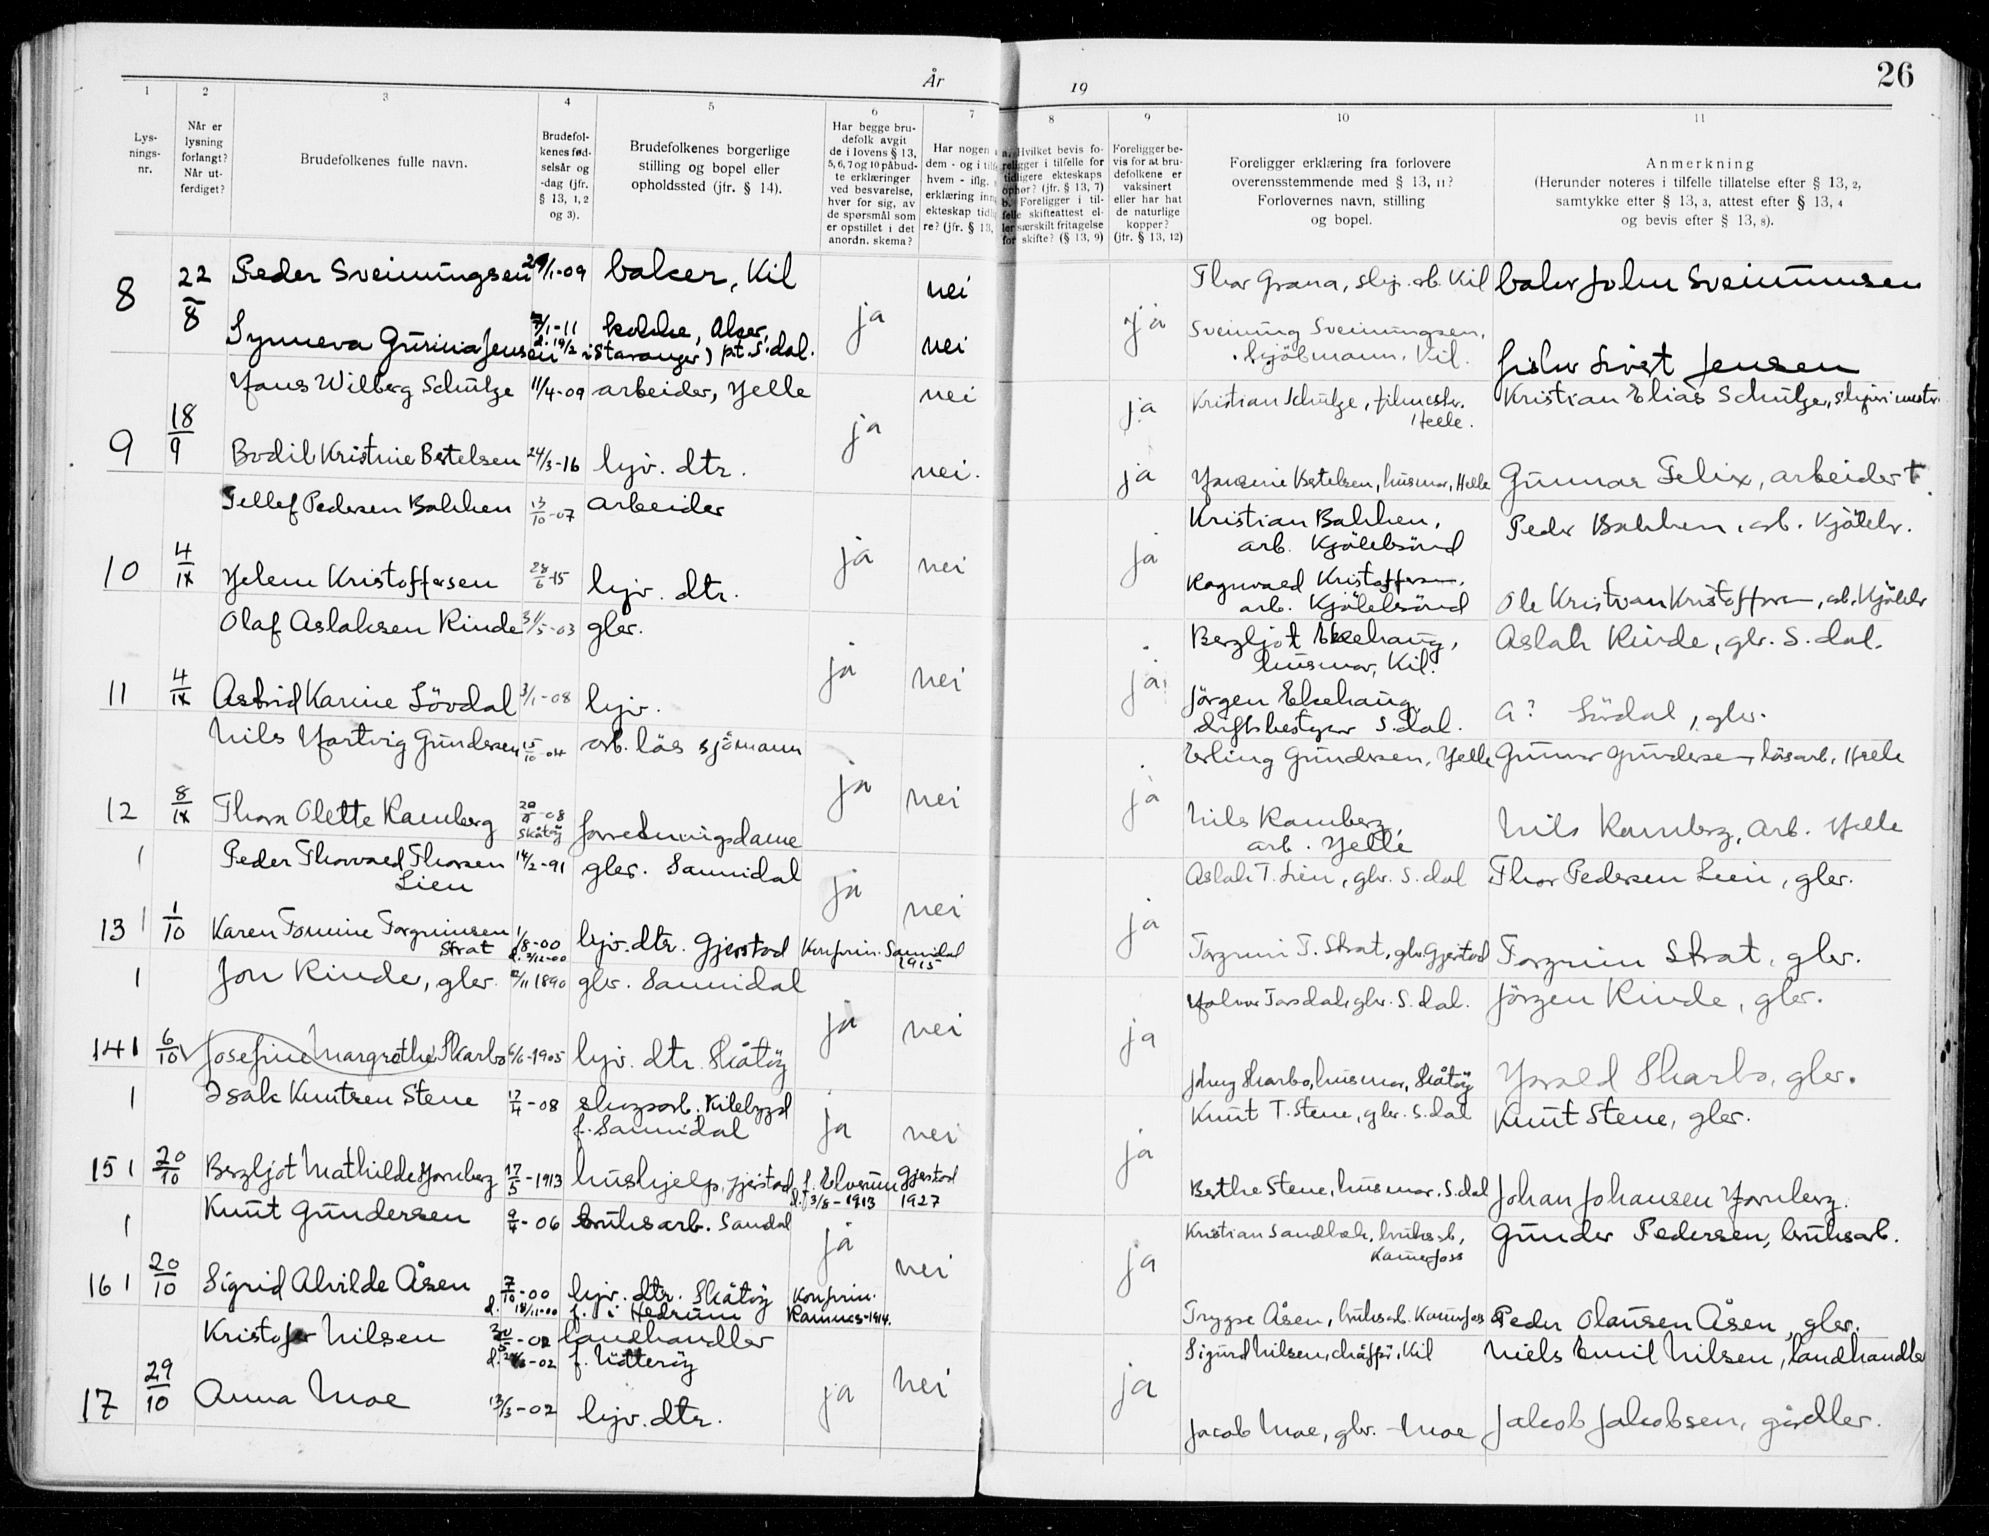 26
År
19
1 2 3 4 5 6 7 8 9 10 11
Lys-
nings-
nr.
Når er
lysning
forlangt?
Når ut-
ferdiget?
Brudefolkenes fulle navn.
Brudefol-
kenes fød-
selsår og
-dag (jfr.
§ 13, 1, 2
og 3).
Brudefolkenes borgerlige
stilling og bopel eller
opholdssted (jfr. § 14).
Har begge bru-
defolk avgit
de i lovens § 13,
5, 6, 7 og 10 påbud-
te erklæringer
ved besvarelse,
hver for sig, av
de spørsmål som
er opstillet i det
anordn. skema?
Har nogen
dem - og i
hvem - iflg.
erklæring
ekteskap
re? (jfr. § 13,
Hvilket bevis fo-
religger i tilfelle for
tidligere ekteskaps
ophør? (jfr. § 13, 7)
b. Foreligger i til-
felle skifteattest el-
ler særskilt fritagelse
for skifte? (§ 13, 9)
Foreligger be-
vis for at bru-
defolkene er
vaksinert
eller har hat
de naturlige
kopper?
(jfr. § 13, 12)
Foreligger erklæring fra forlovere
overensstemmende med § 13, 11?
Forlovernes navn, stilling
og bopel.
Anmerkning
(Herunder noteres i tilfelle tillatelse efter § 13, 2,
samtykke efter § 13, 3, attest efter § 13, 4
og bevis efter § 13, 8).
8 22/8 Peder Sveinungsen /1-09 baker, Kil ja nei ja Thor Grana, slip. arb. Kil baker John Sveinungsen
Synneva Gurina Jensen /1-11 d. 19/2 kokke, Aker, i Stavanger) pt. S.dal. nei Sveinung Sveinungsen, Kil. fisker Sivert Jensen
9 18/9 Hans Wilberg Schulze 11/4-09 arbeider, Helle ja nei ja Kristian Schulze, Helle. Kristian Elias Schulze, sliperimestr.
Bodil Kristine Bertelsen 24/3-16 hjv. dtr. nei. ja Bertelsen, husmor, Helle Gunnar Felix, arbeider †.
10 4/IX Tellef Pedersen Bakken 13/10-07 arbeider ja nei ja Kristian Bakken, arb. Kjölebrönd Peder Bakken, arb. Kjölebr.
Helene Kristoffersen 28/6-15 hjv. dtr. Ragnvald Kristoffersen. arb. Kjölebrönd Ole Kristian Kristoffersen, arb. Kjölebr
11 4/IX Olaf Aslaksen Rinde 31/5-03 gbr. ja nei ja Bergljot Ekehaug, husmor, Kil. Aslak Rinde, gbr. S.dal.
Astrid Karine Lövdal 3/1-08 hjv. Jörgen Ekehaug, driftsbestyrer S.dal. A? Lövdal, gbr.
12 8/IX Nils Hartvig Gundersen 15/10-04 arb. lös sjömann ja nei ja Erling Gundersen, Helle Gunnar Gundersen, lösarb, Helle
Thora Olette Ramberg 20/8-08 Skåtöy forretningsdame Nils Ramberg, arb. Helle Nils Ramberg, arb. Helle
13 1/10 Peder Thorvald Thorsen Lien 14/2-91 gbr. Sannidal ja nei ja Aslak T. Lien, gbr. S.dal Thor Pedersen Lien, gbr.
Karen Tomine Torgrimsen Strat 1/8-00 d. 2/12-00 hjv. dtr. Gjerstad Konfirm. Sannidal 1915 Torgrim T. Strat, gbr. Gjerstad Torgrim Strat, gbr.
14 6/10 Jon Rinde, gbr. /11 1890 gbr. Sannidal ja nei ja Halvor Tarsdal, gbr. S.dal. Jörgen Rinde, gbr.
Josefine Margrethe Skarbo 6/6-1905 hjv. dtr. Skåtöy Skarbo, husmor, Skåtöy Harald Skarbo, gbr.
15 20/10 Isak Knutsen Stene 17/4-08 skogsarb. Kilebygd f. Sannidal ja nei ja Knut T. Stene, gbr. S.dal Knut Stene, gbr.
Bergljot Mathilde Hornberg 17/5-1913 hushjelp, Gjerstad f. Elverum d. 3/8-1913 Gjerstad 1927 Berthe Stene, husmor. S.dal Johan Johansen Hornberg.
16 20/10 Knut Gundersen 9/4-06 bruksarb. Sandal ja nei ja Kristian Sandbæk, bruksarb, Kamerfoss Gunder Pedersen, bruksarb.
Sigrid Alvilde Åsen 7/10-00 d. 18/11-00 hjv. dtr. Skåtöy f. i Hedrum Konfirm. Ramnes-1914. Trygve Åsen, bruksarb. Kamerfoss Peder Olausen Åsen, gbr.
17 29/10 Kristofer Nilsen /5-02 d. /6-02 landhandler f. Nötteröy ja nei ja Sigurd Nilsen, chåffør, Kil Niels Emil Nilsen, landhandler
Anna Moe 13/3-02 hjv. dtr. Jacob Moe, gbr. - Moe Jakob Jakobsen, gårdbr.